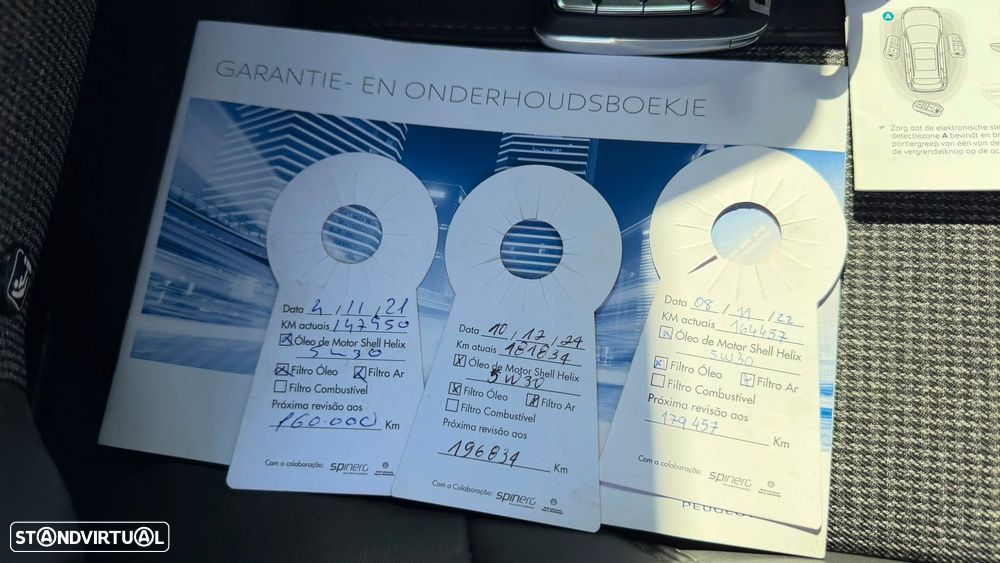 GARANTIE- EN ONDERHOUDSBOEKJE
A
Zorg dat de elektronische sle
detectiezone A bevindt en br
portiergreep van één van de
de vergrendelknop op de ac
Data 4/11/21
KM actuais 147950
X Óleo de Motor Shell Helix
5W30
X Filtro Óleo X Filtro Ar
Filtro Combustível
Próxima revisão aos
160.000 Km
Com a colaboração: spinerg
Data 10/12/24
Km atuais 181834
X Óleo de Motor Shell Helix
5W30
X Filtro Óleo X Filtro Ar
Filtro Combustível
Próxima revisão aos
196834 Km
Com a Colaboração: spinerg
Data 08/11/22
KM actuais 164457
X Óleo de Motor Shell Helix
5W30
X Filtro Óleo X Filtro Ar
Filtro Combustível
Próxima revisão aos
179457 Km
Com a colaboração: spinerg
PEUGEO
STANDVIRTUAL